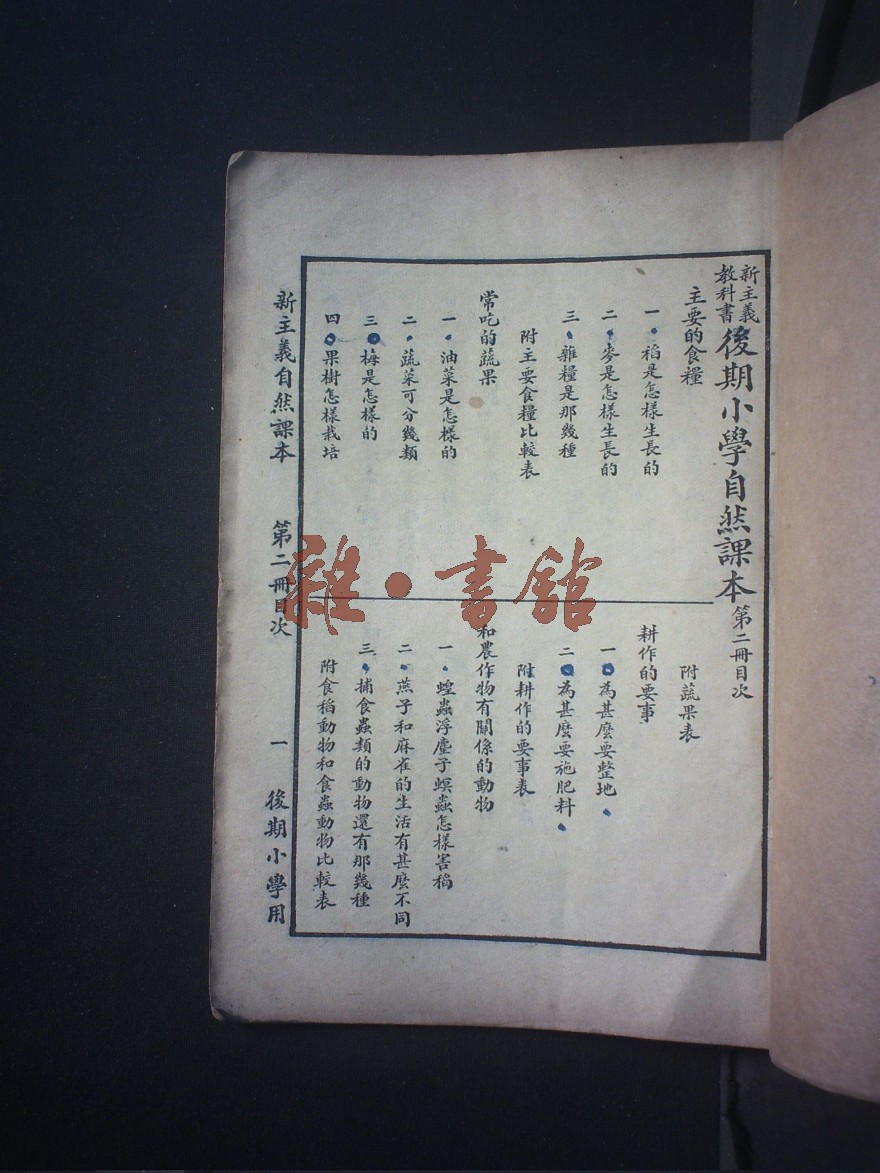 新主義教科書後期小學自然課本第二冊目次
主要的食糧
一 稻是怎樣生長的
二 麥是怎樣生長的
三 雜糧是那幾種
附主要食糧比較表
常吃的蔬果
一 油菜是怎樣的
二 蔬菜可分幾類
三 梅是怎樣的
四 果樹怎樣栽培
附蔬果表
耕作的要事
一 為甚麼要整地
二 為甚麼要施肥料
附耕作的要事表
和農作物有關係的動物
一 蝗蟲浮塵子螟蟲怎樣害稻
二 燕子和麻雀的生活有甚麼不同
三 捕食蟲類的動物還有那幾種
附食稻動物和食蟲動物比較表
新主義自然課本 第二冊目次 一 後期小學用
雜·書館